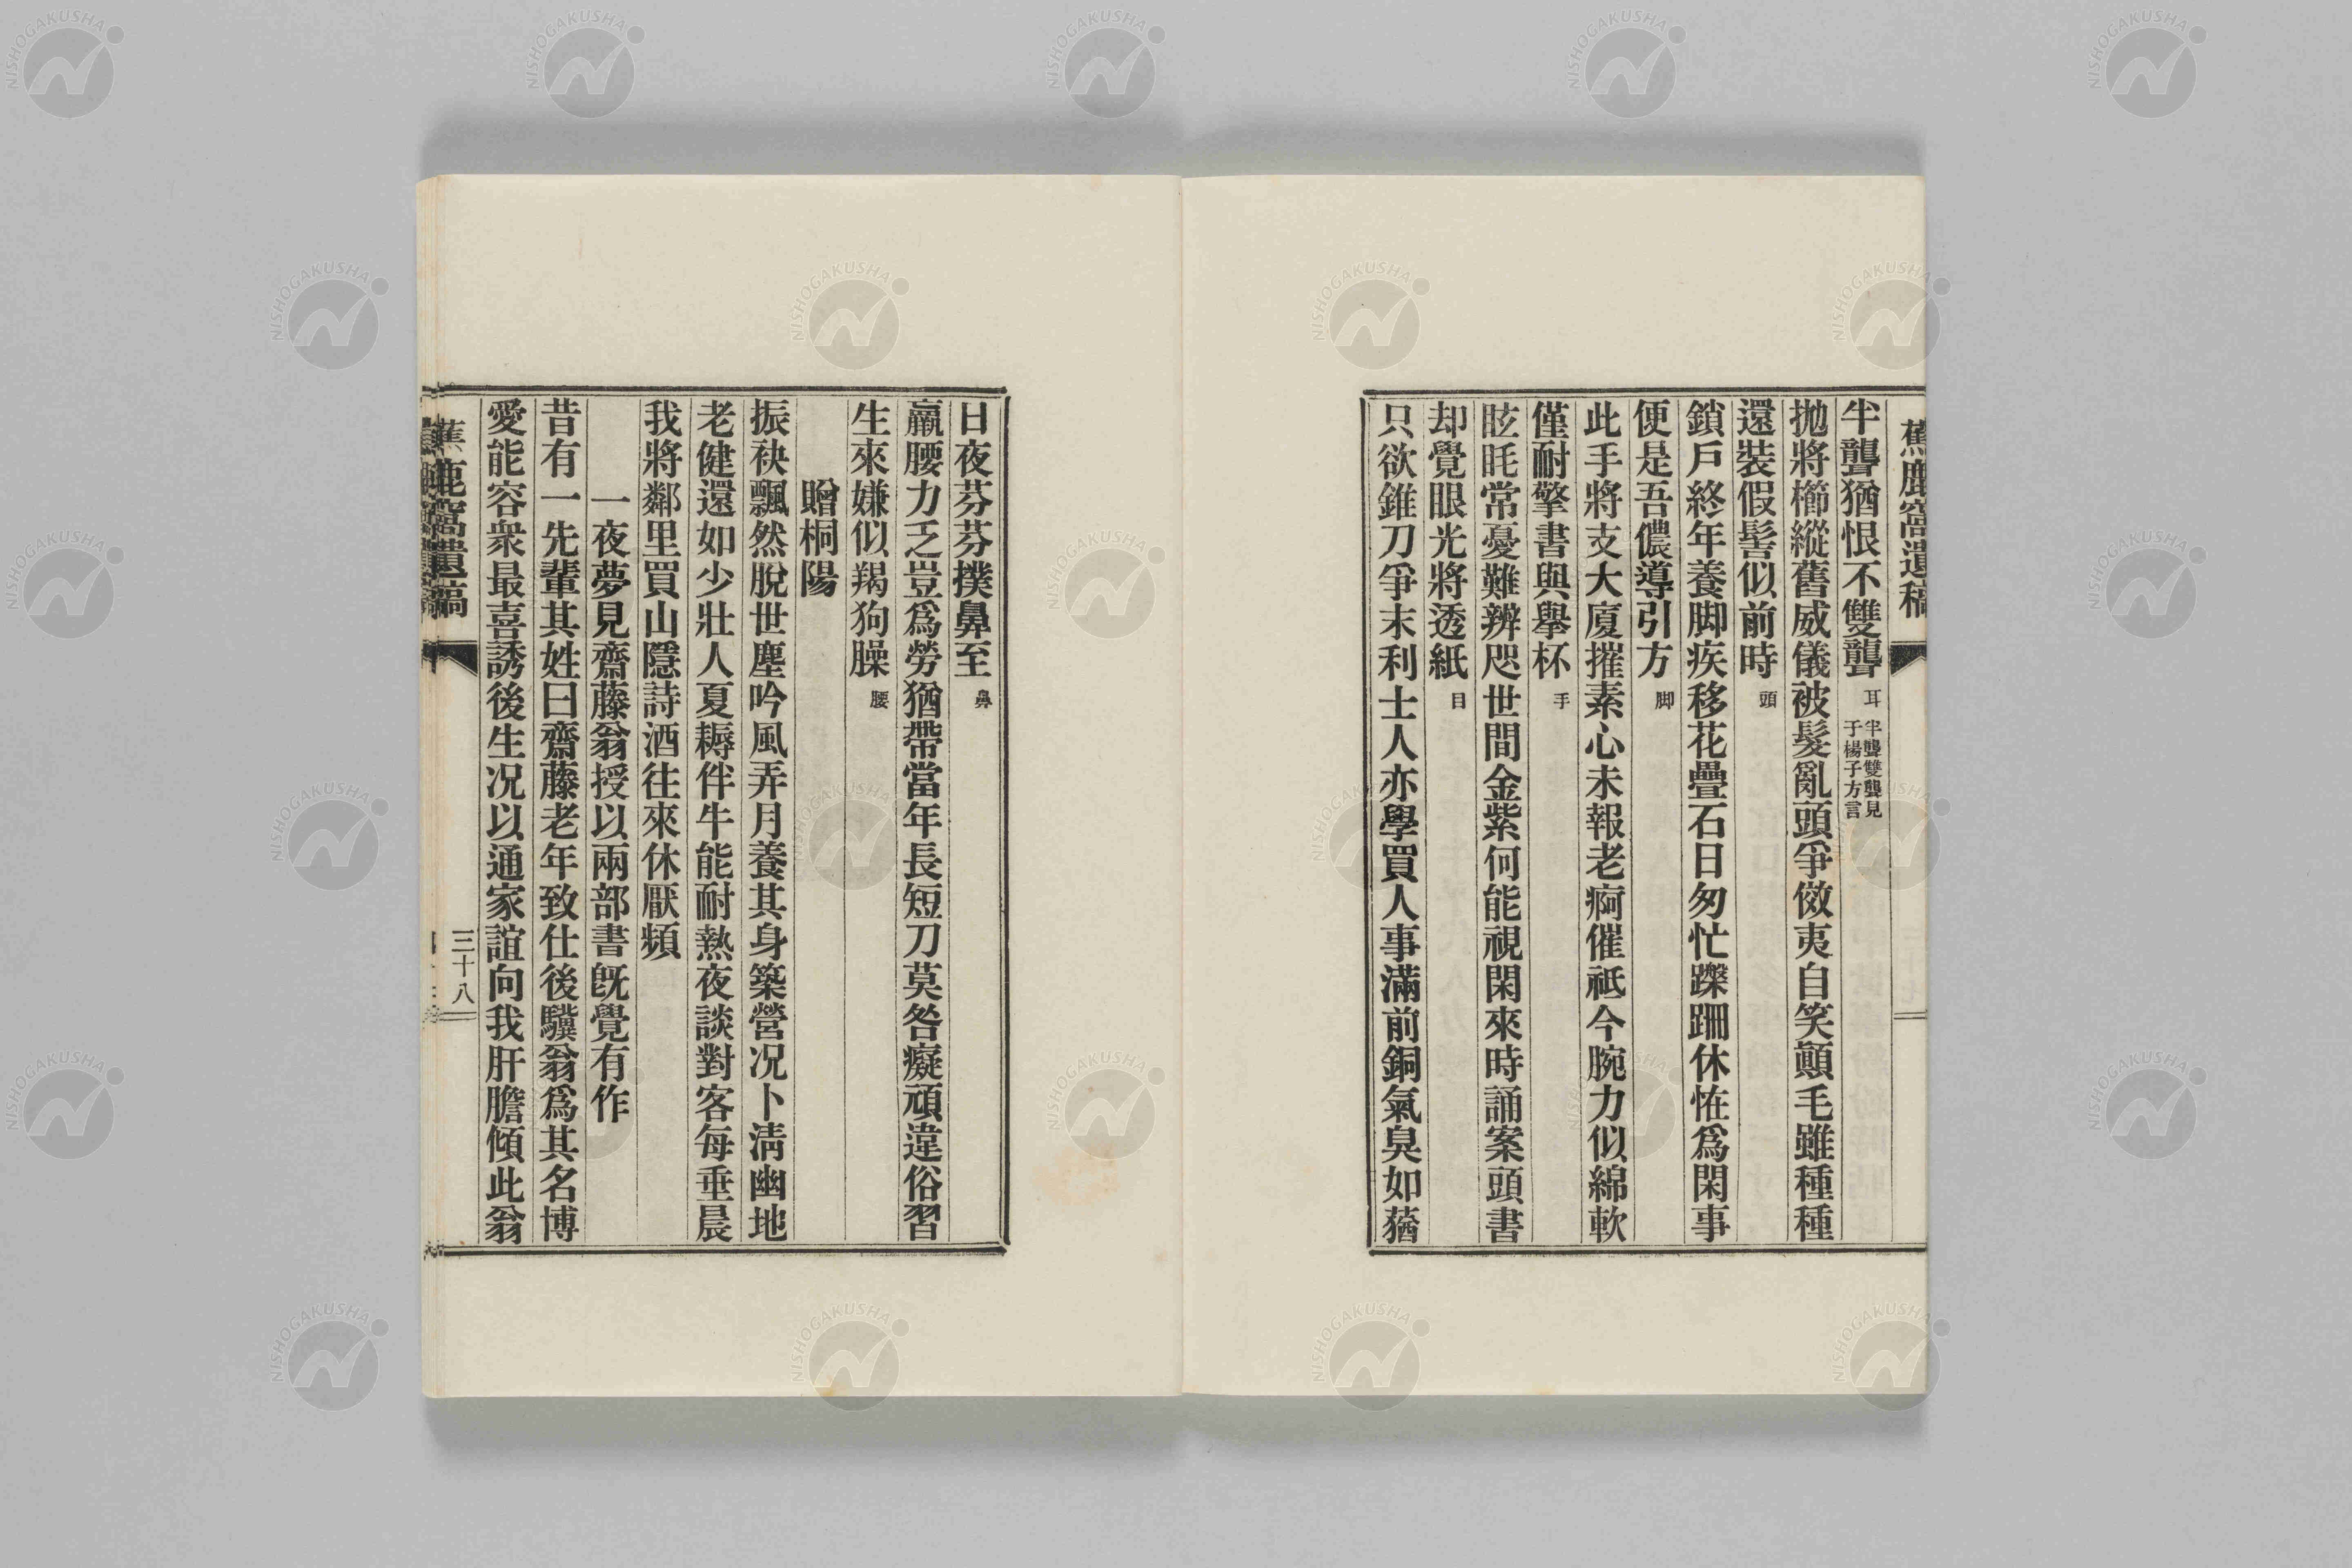 蕉鹿窩遺稿
半聾猶恨不雙聾 耳 半聾雙聾見于楊子方言
拋將櫛縰舊威儀被髮亂頭爭傚夷自笑顚毛雖種種
還裝假髻似前時 頭
鎖戶終年養脚疾移花疊石日匆忙躒跚休恠爲閑事
便是吾儂導引方 脚
此手將支大廈摧素心未報老痾催祗今腕力似綿軟
僅耐擎書與擧杯 手
眩眊常憂難辨咫世間金紫何能視閑來時誦案頭書
却覺眼光將透紙 目
只欲錐刀爭末利士人亦學買人事滿前銅氣臭如蕕
日夜芬芬撲鼻至 鼻
羸腰力乏豈爲勞猶帶當年長短刀莫咎癡頑違俗習
生來嫌似羯狗臊 腰
贈桐陽
振袂飄然脫世塵吟風弄月養其身築營况卜淸幽地
老健還如少壯人夏耨伴牛能耐熱夜談對客每垂晨
我將鄰里買山隱詩酒往來休厭頻
一夜夢見齋藤翁授以兩部書旣覺有作
昔有一先輩其姓曰齋藤老年致仕後驥翁爲其名博
愛能容衆最喜誘後生况以通家誼向我肝膽傾此翁
蕉鹿窩遺稿
三十八
NISHOGAKUSHA